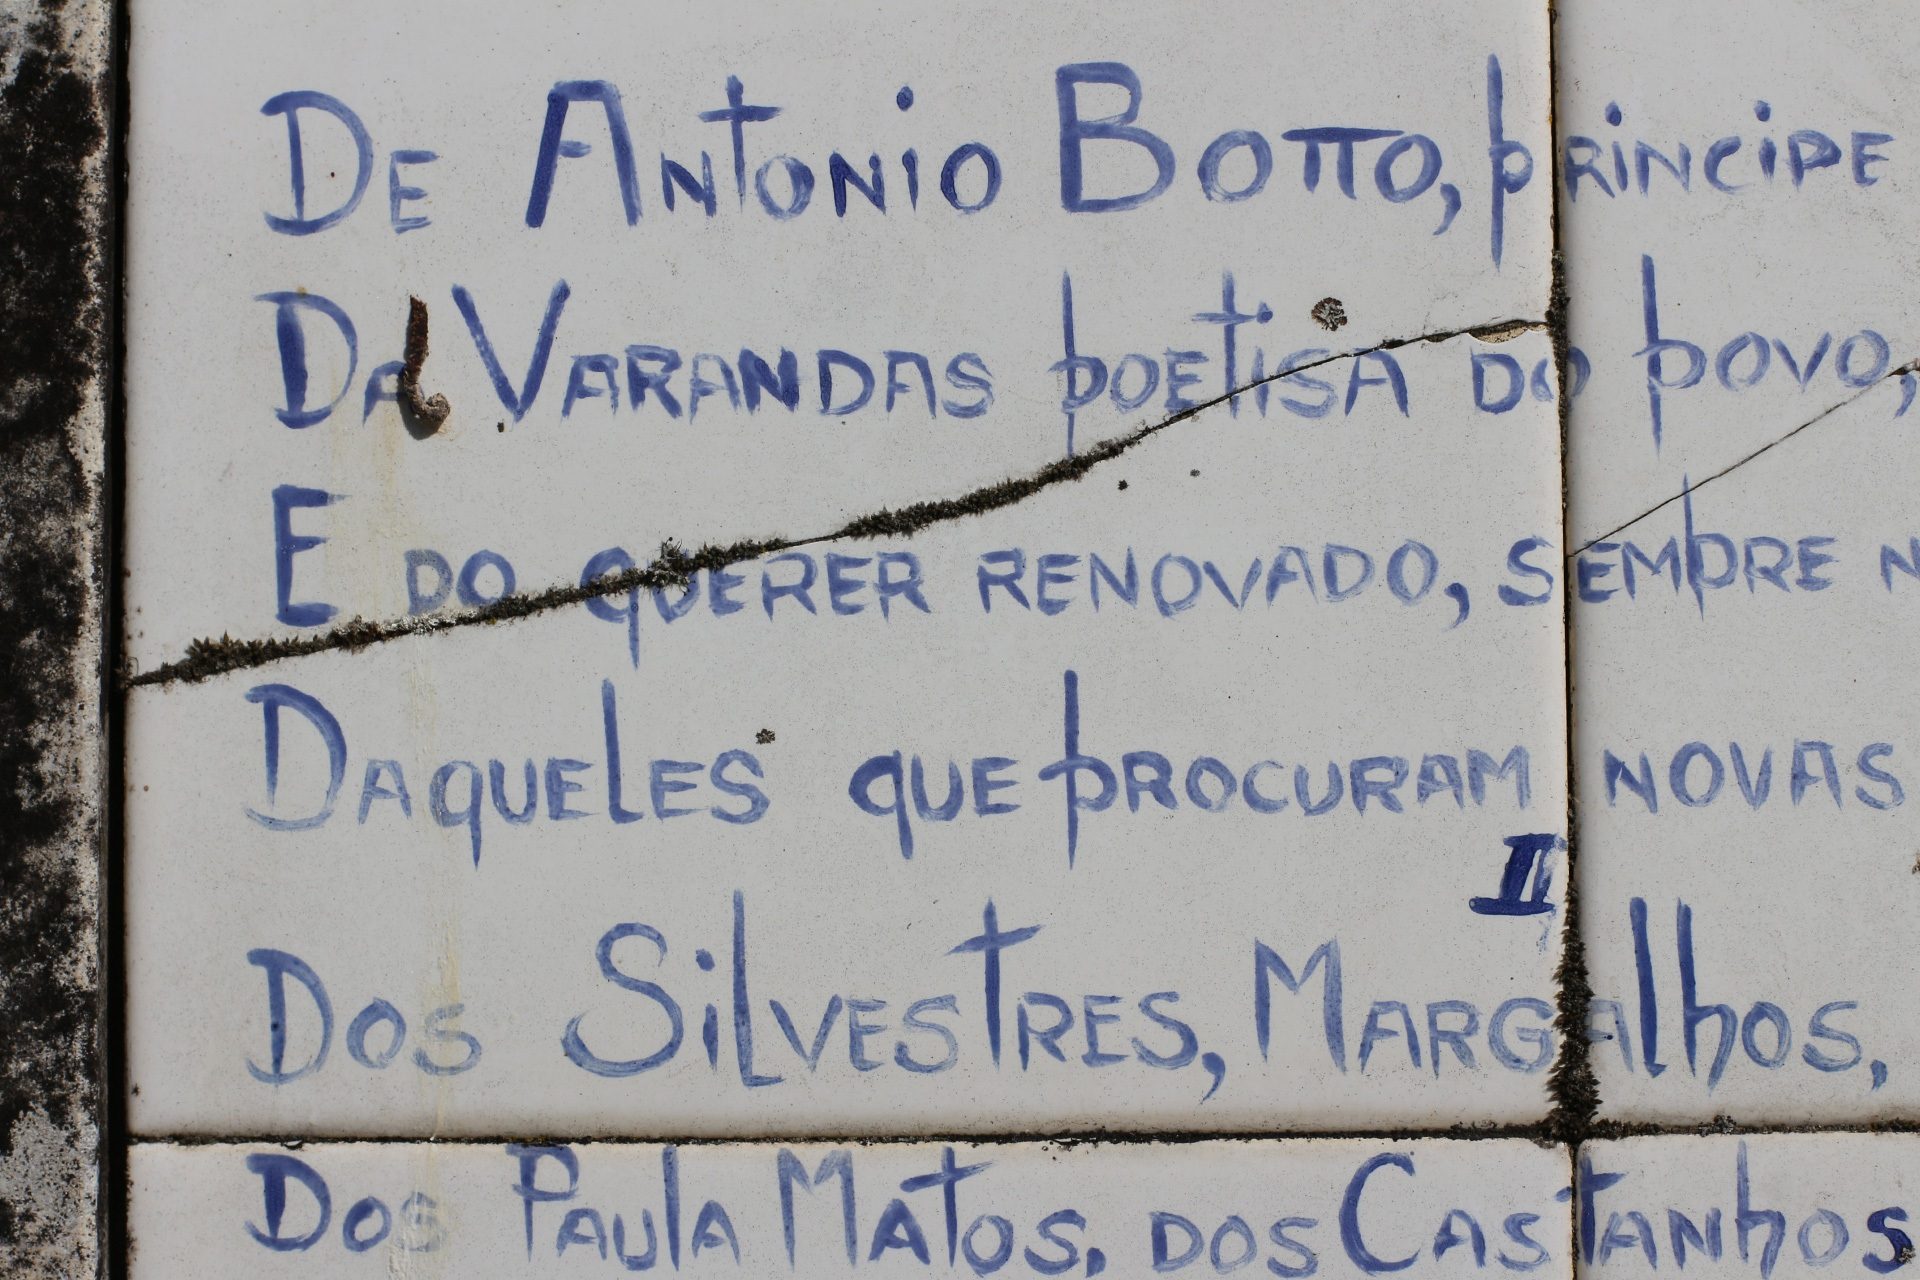 De Antonio Botto, principe
Da Varandas poetisa do povo,
E do querer renovado, sempre n
Daqueles que procuram novas
II
Dos Silvestres, Margalhos,
Dos Paula Matos, dos Castanhos